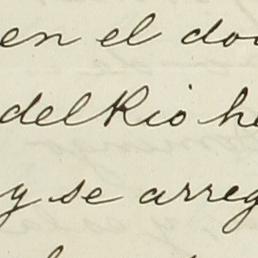 en el do
del Rio he
y se arreg